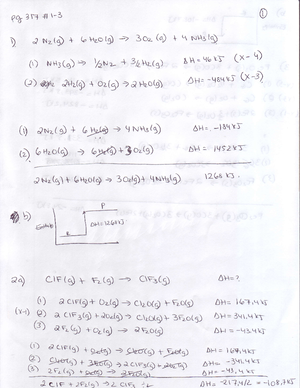 pg 357 # 1-3
1) 2N₂(g) + 6H₂O(g) → 3O₂(g) + 4NH₃(g)
(1) NH₃(g) → ½N₂ + 3/2 H₂(g) ΔH = 46 kJ (x-4)
(2) 2H₂(g) + O₂(g) → 2H₂O(g) ΔH = -484 kJ (x-3)
(1) 2N₂(g) + 6H₂(g) → 4NH₃(g) ΔH = -184 kJ
(2) 6H₂O(g) → 6H₂(g) + 3O₂(g) ΔH = 1452 kJ
2N₂(g) + 6H₂O(g) → 3O₂(g) + 4NH₃(g) 1268 kJ
b)
P
ΔH = 1268 kJ
R
2a) ClF(g) + F₂(g) → ClF₃(g) ΔH = ?
(1) 2ClF(g) + O₂(g) → Cl₂O(g) + F₂O(g) ΔH = 167.4 kJ
(x-1) (2) 2ClF₃(g) + 2O₂(g) → Cl₂O(g) + 3F₂O(g) ΔH = 341.4 kJ
(3) 2F₂(g) + O₂(g) → 2F₂O(g) ΔH = -43.4 kJ
(1) 2ClF(g) + O₂(g) → Cl₂O(g) + F₂O(g) ΔH = 167.4 kJ
(2) Cl₂O(g) + 3F₂O(g) → 2ClF₃(g) + 2O₂(g) ΔH = -341.4 kJ
(3) 2F₂(g) + O₂(g) → 2F₂O(g) ΔH = -43.4 kJ
2ClF + 2F₂(g) → 2ClF₃ ΔH = -217.4/2 = -108.7 kJ